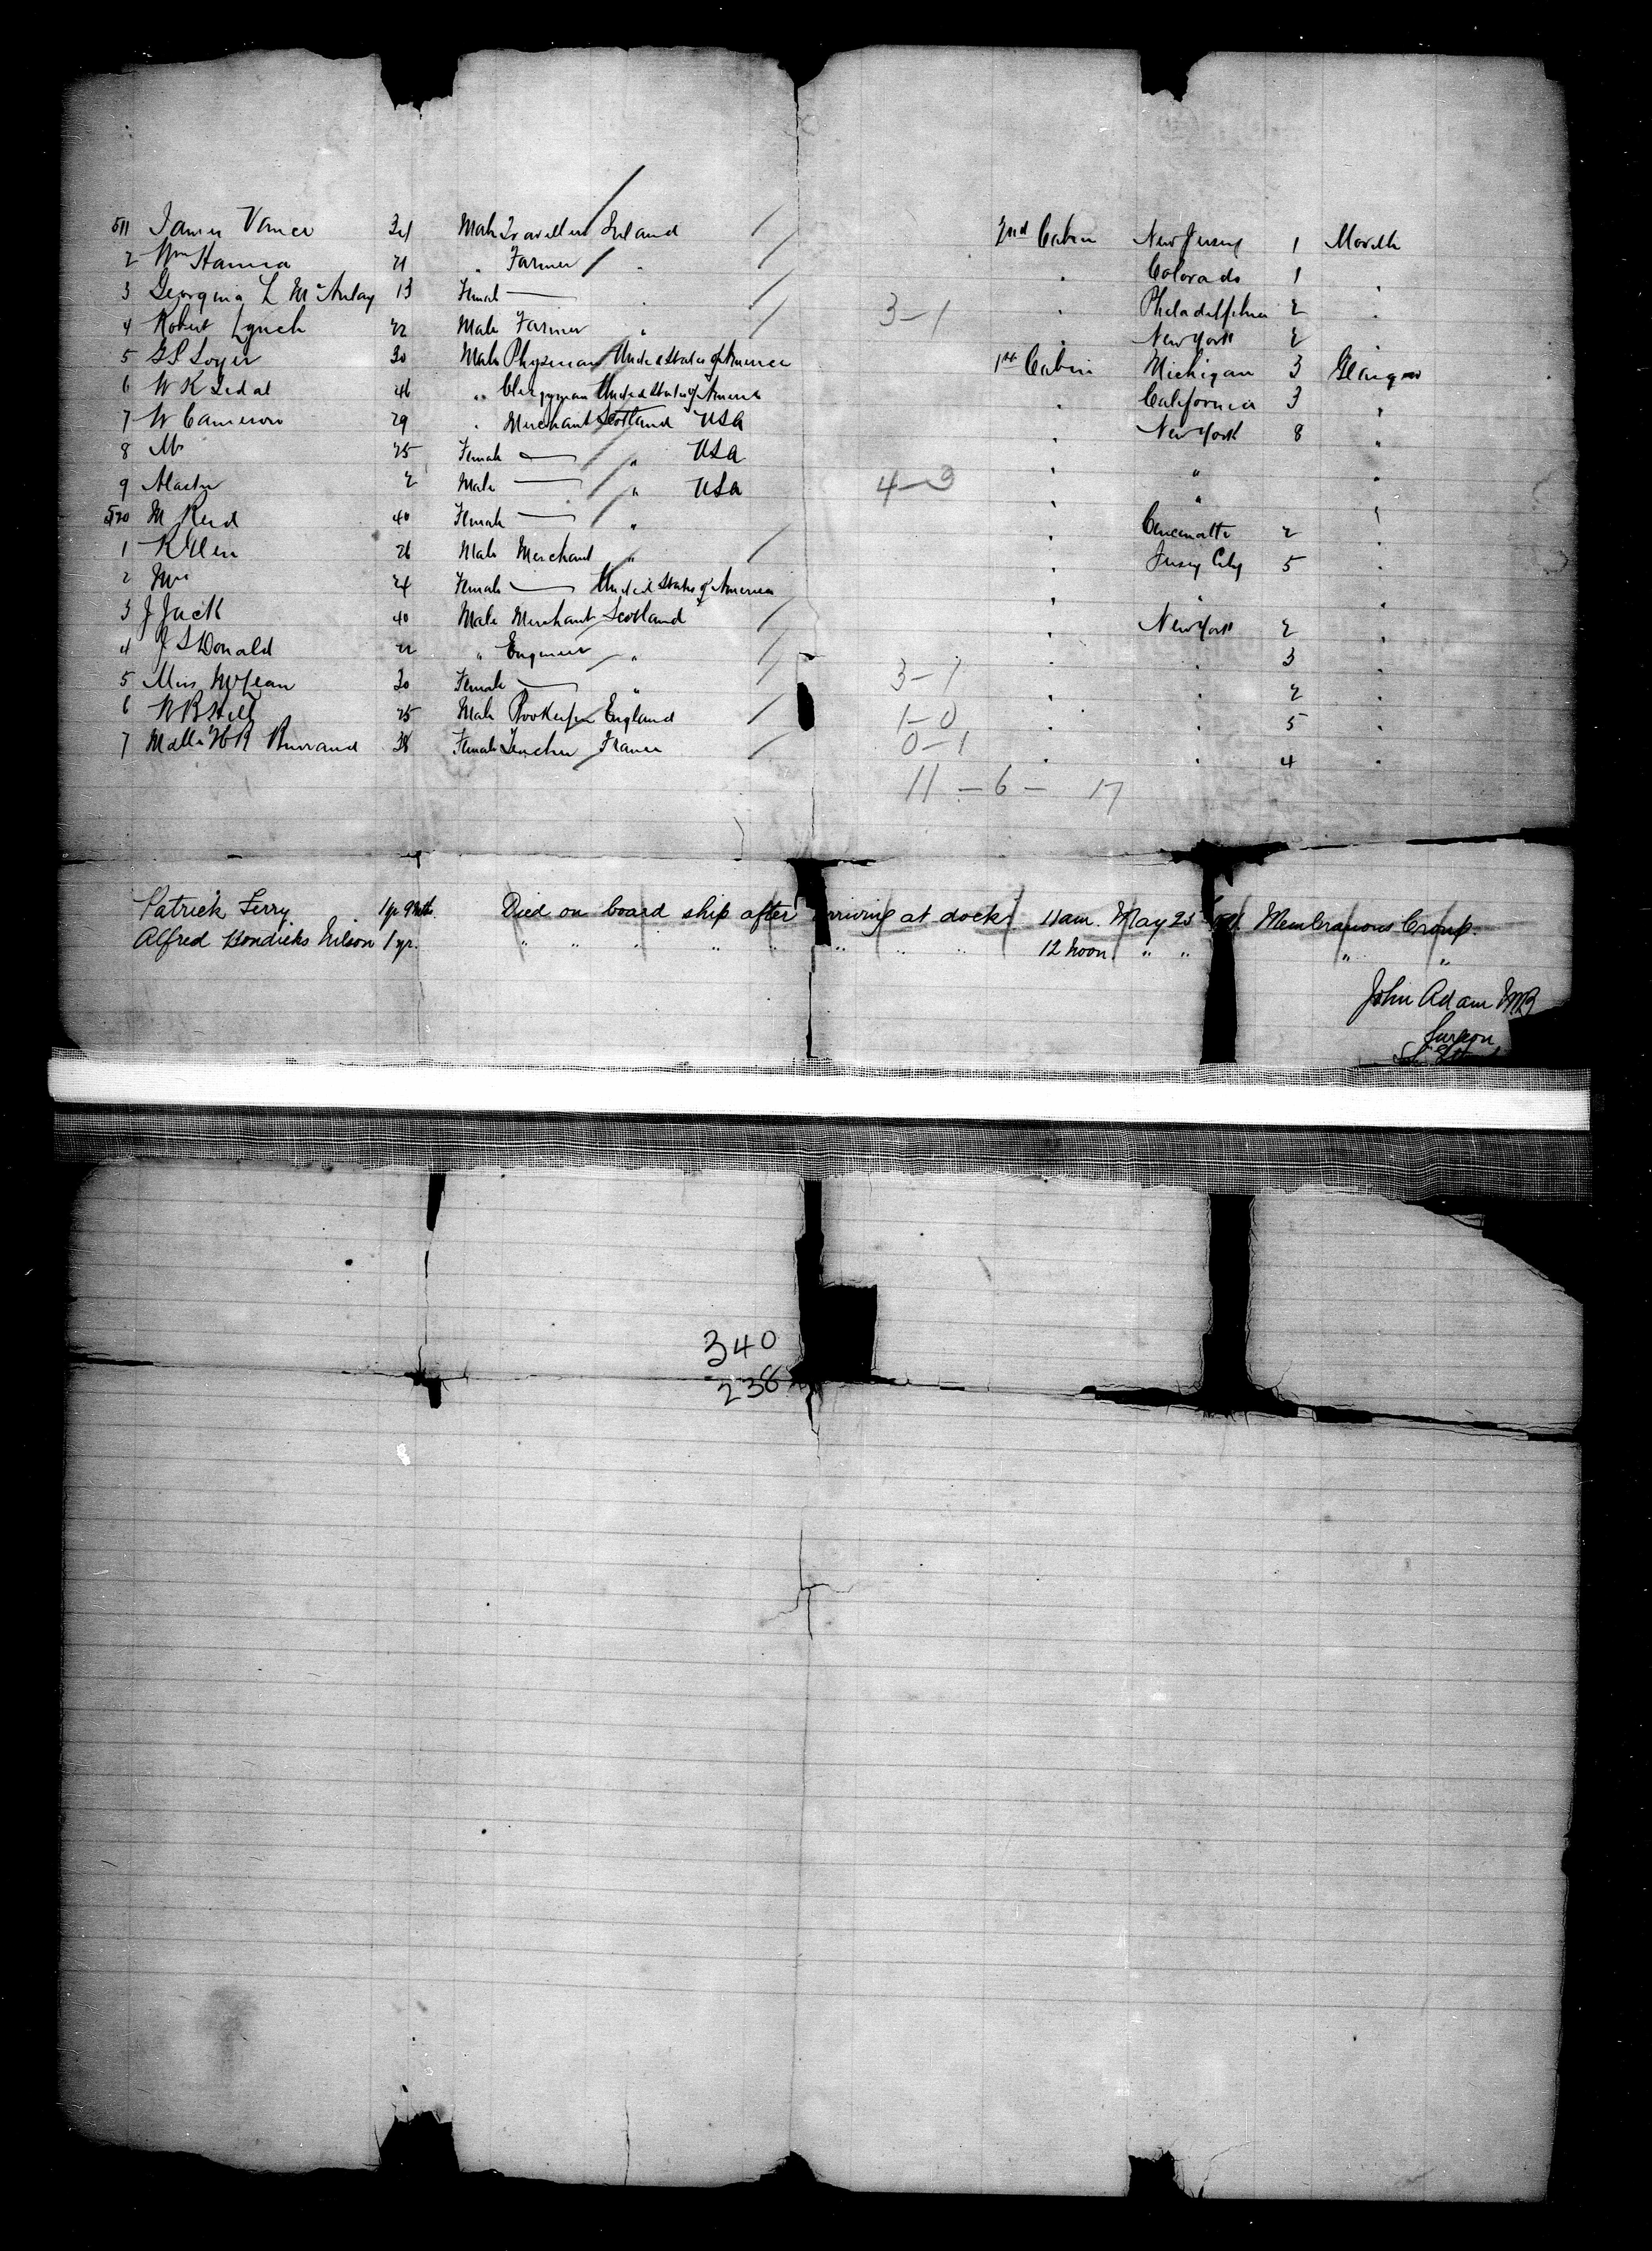 511 James Vance 34 Male Traveller Ireland 2nd Cabin New Jersey 1 Moville
2 Wm Hanna 21 " Farmer " " Colorado 1 "
3 Georgina L McAulay 13 Female — " " Philadelphia 2 "
4 Robert Lynch 22 Male Farmer " 3-1 " New York 2 "
5 30 Male Physician United States of America 1st Cabin Michigan 3 Glasgow
6 W K 46 " Clergyman United States of America " California 3 "
7 W Cameron 29 " Merchant Scotland USA " New York 8 "
8 Mrs 25 Female — " USA " " "
9 Master 2 Male — " USA 4-3 " " "
520 M Reid 40 Female — " " Cincinatti 2 "
1 26 Male Merchant " " Jersey City 5 "
2 Mrs 24 Female — United States of America " " "
3 J Jack 40 Male Merchant Scotland " New York 2 "
4 J S Donald 22 " Engineer " " " 3
5 Miss McLean 30 Female — " 3-1 " " 2 "
6 W B Hill 25 Male Bookeeper England 1-0 " " 5 "
7 Mdlle 38 Female Teacher France 0-1 " " 4 "
11 - 6 - 17
Patrick Ferry 1yr 9mths. Died on board ship after arriving at dock 11am. May 25 Membranous Croup.
Alfred Hendricks Nilson 1 yr. " " " " " " " " 12 noon. " " " "
John Adam MB
Surgeon
340
238